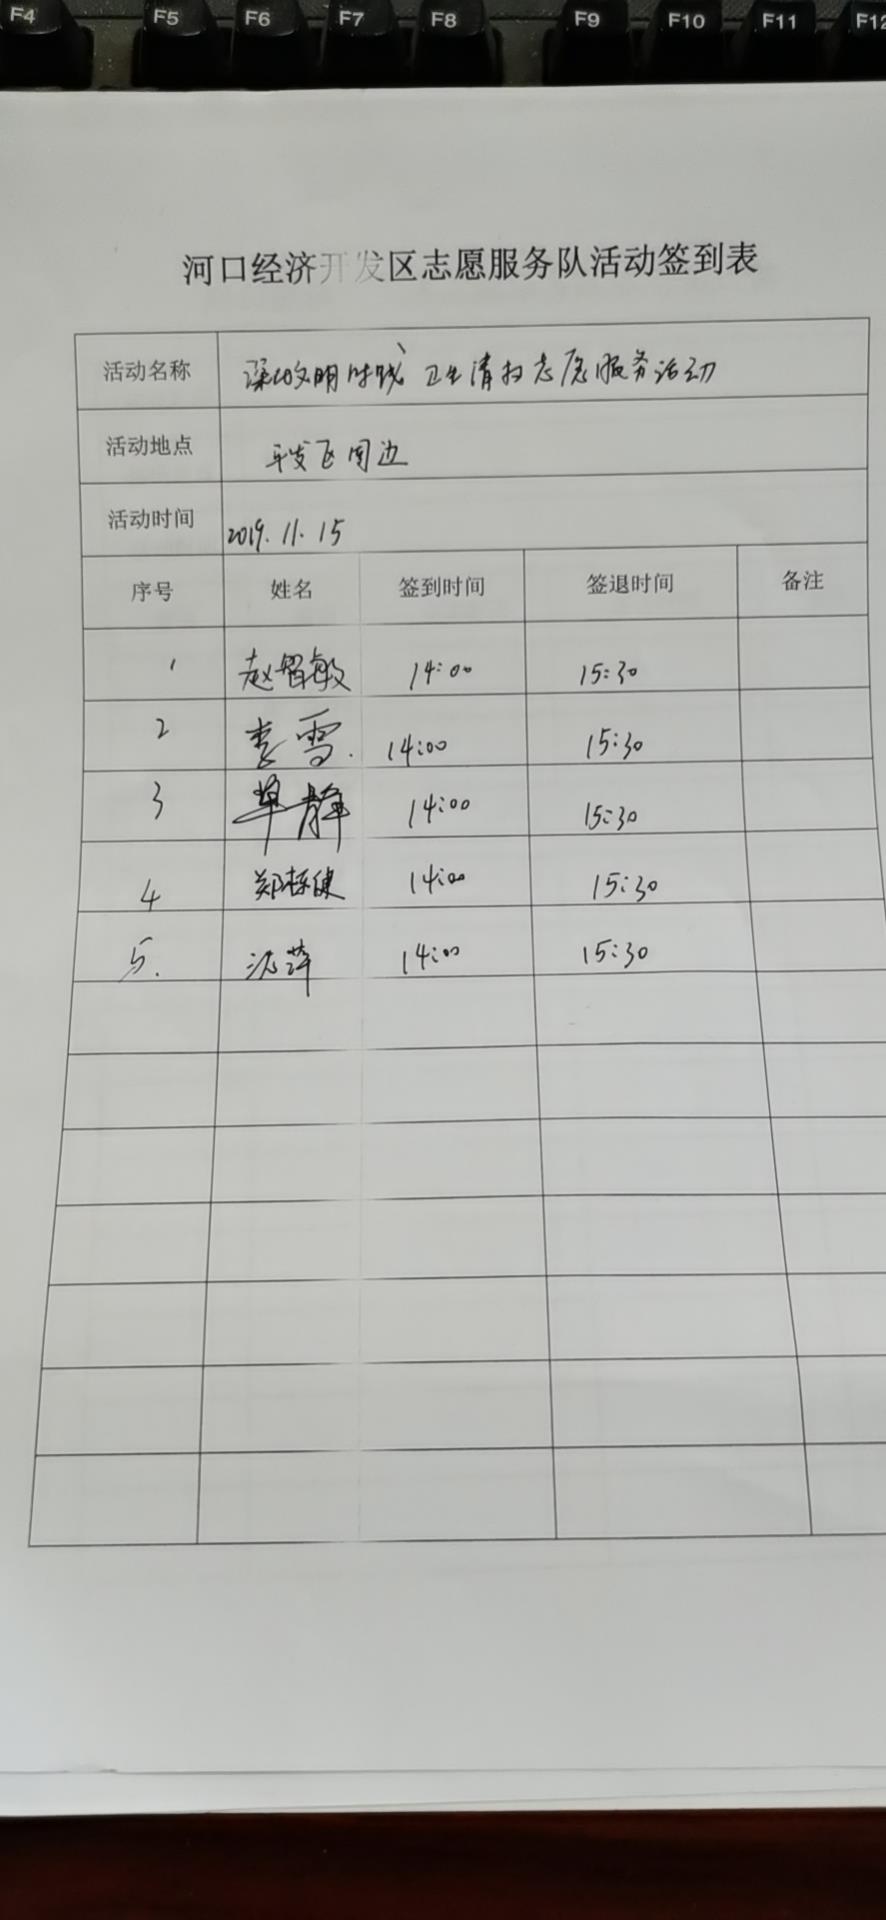 F4 F5 F6 F7 F8 F9 F10 F11 F12
河口经济开发区志愿服务队活动签到表
活动名称 文明 卫生清扫志愿服务活动
活动地点 开发区周边
活动时间 2019.11.15
序号 姓名 签到时间 签退时间 备注
1 赵智敏 14:00 15:30
2 李雪. 14:00 15:30
3 静 14:00 15:30
4 郑栋健 14:00 15:30
5. 萍 14:00 15:30